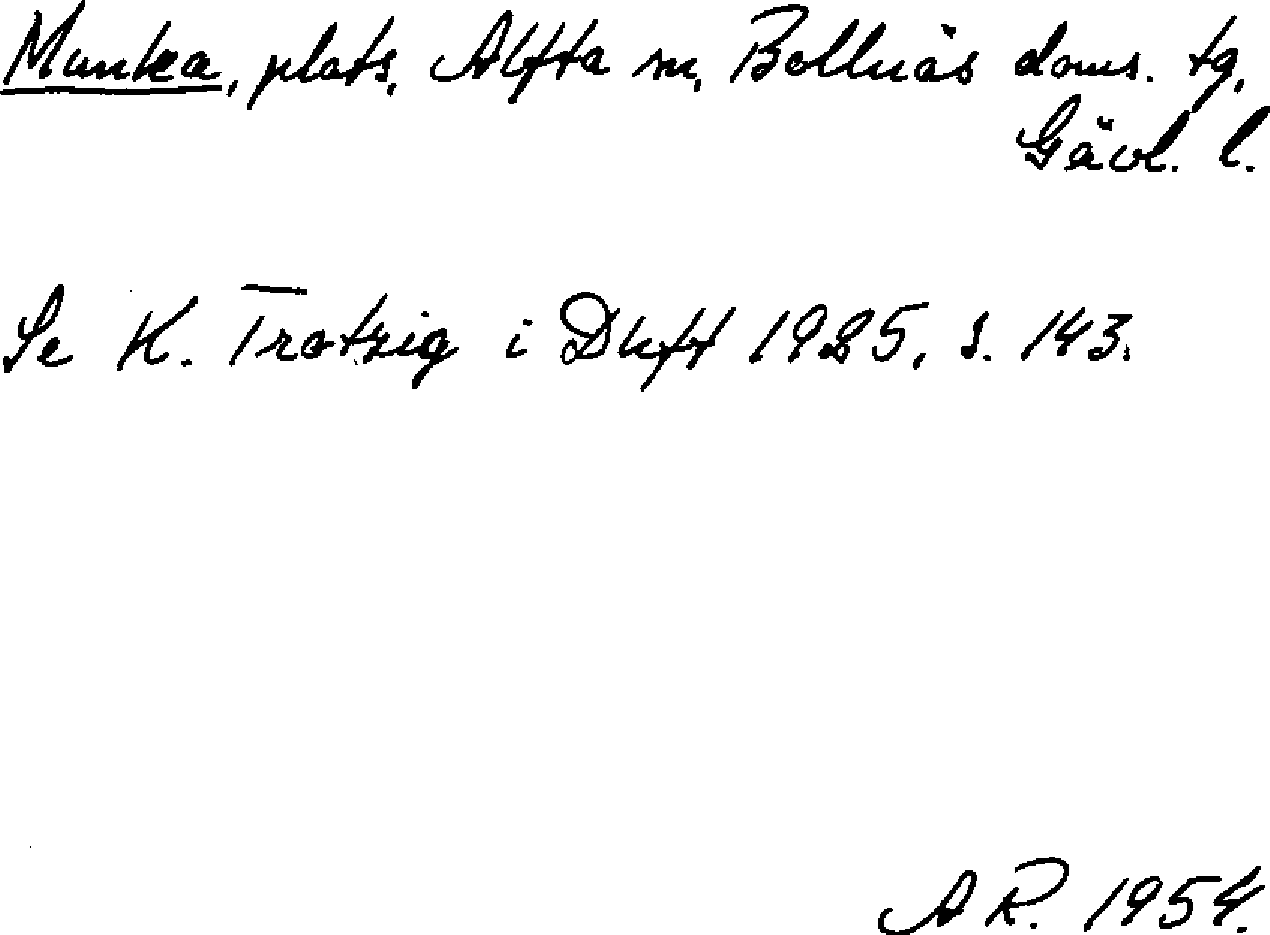 Munka, plats, Alfta sn, Bollnäs doms. tg,
Gävl. l.
Se K. Trotzig i Dhftf 1925, s. 143.
AR. 1954.